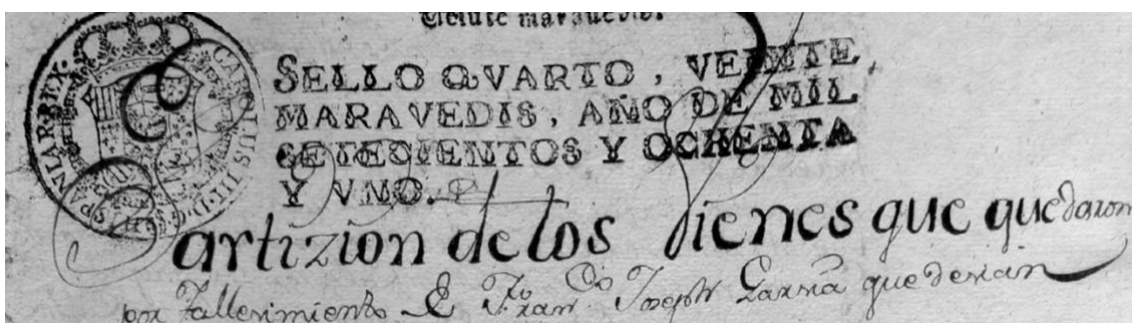 Veinte maravedis.
HISPANIAR. REX. CAROLUS III. D. G.
SELLO QVARTO, VEINTE
MARAVEDIS, AÑO DE MIL
SETECIENTOS Y OCHENTA
Y VNO.
Partizion de los Bienes que quedaron
por Fallesimiento de Fran.co Joseph Garzia que dexan